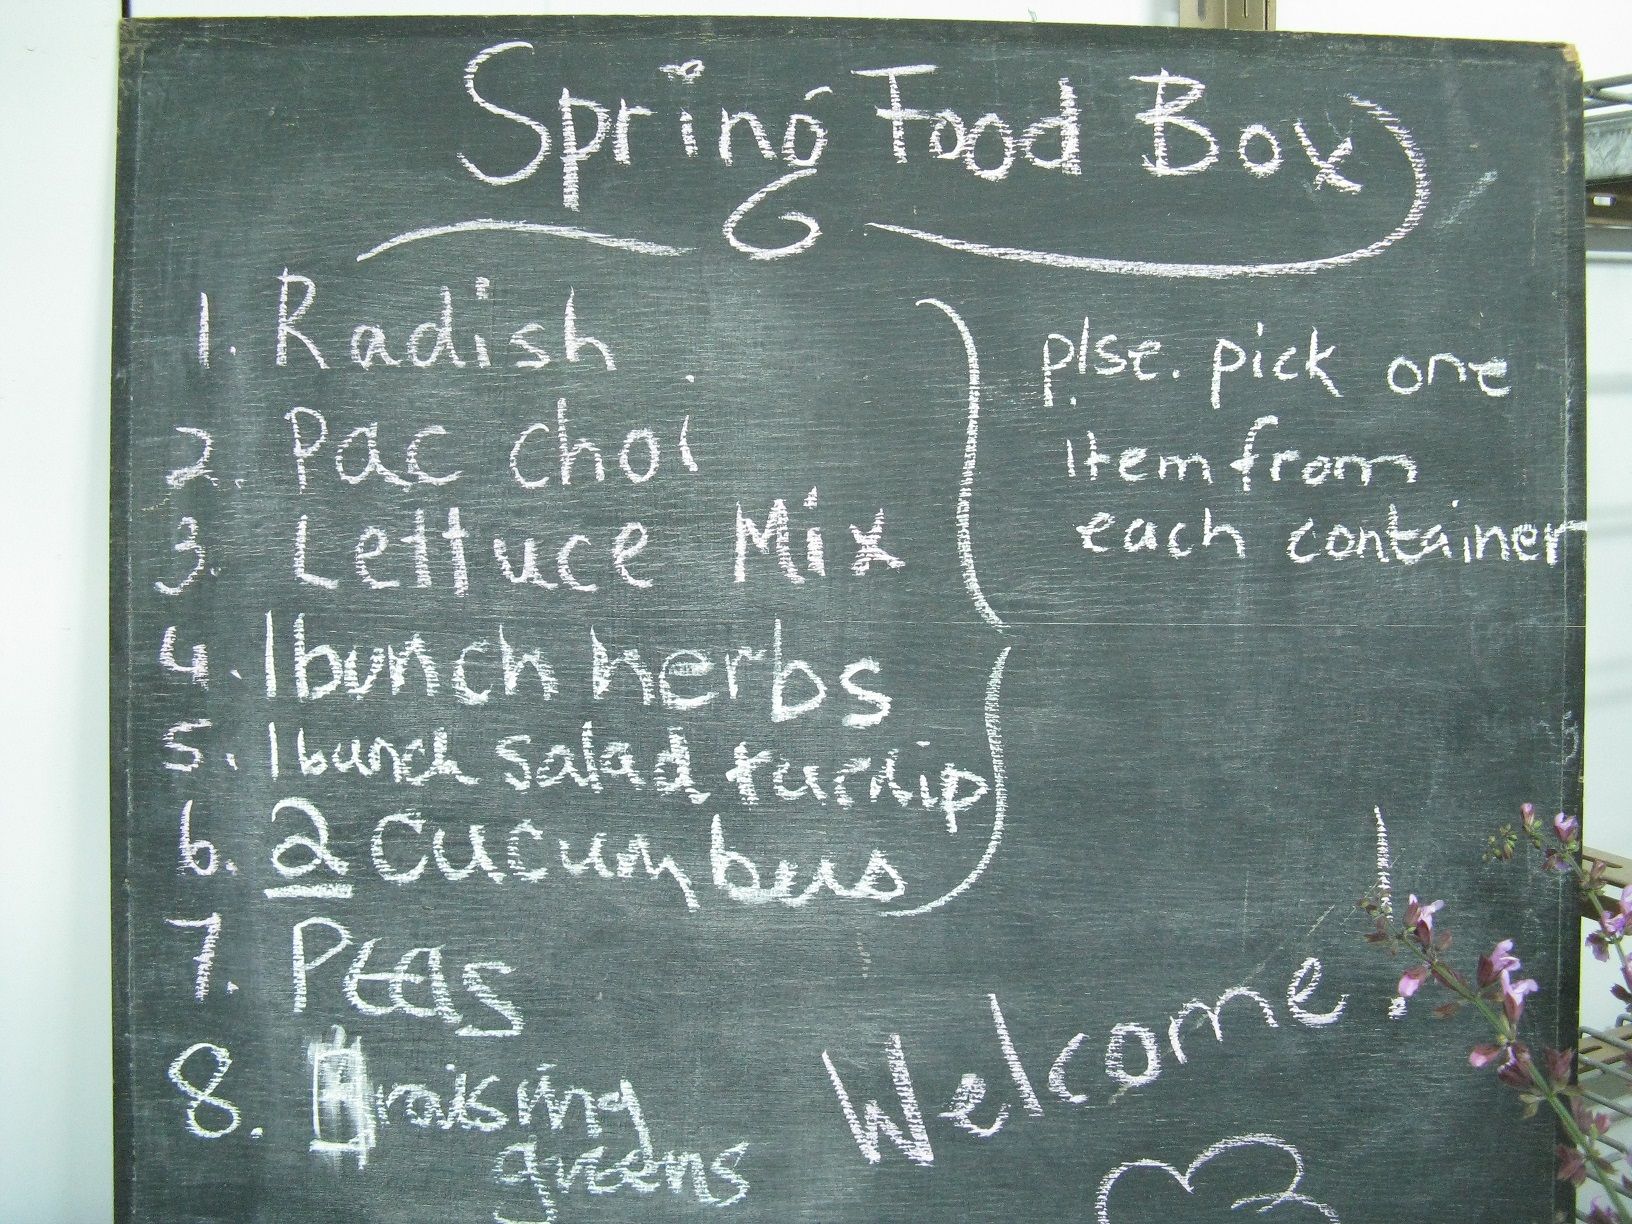 Spring Food Box
1. Radish
2. Pac choi
3. Lettuce Mix
4. 1 bunch herbs
5. 1 bunch salad turnip
6. 2 cucumbers
7. Peas
8. Braising
greens
plse. pick one
item from
each container
Welcome!